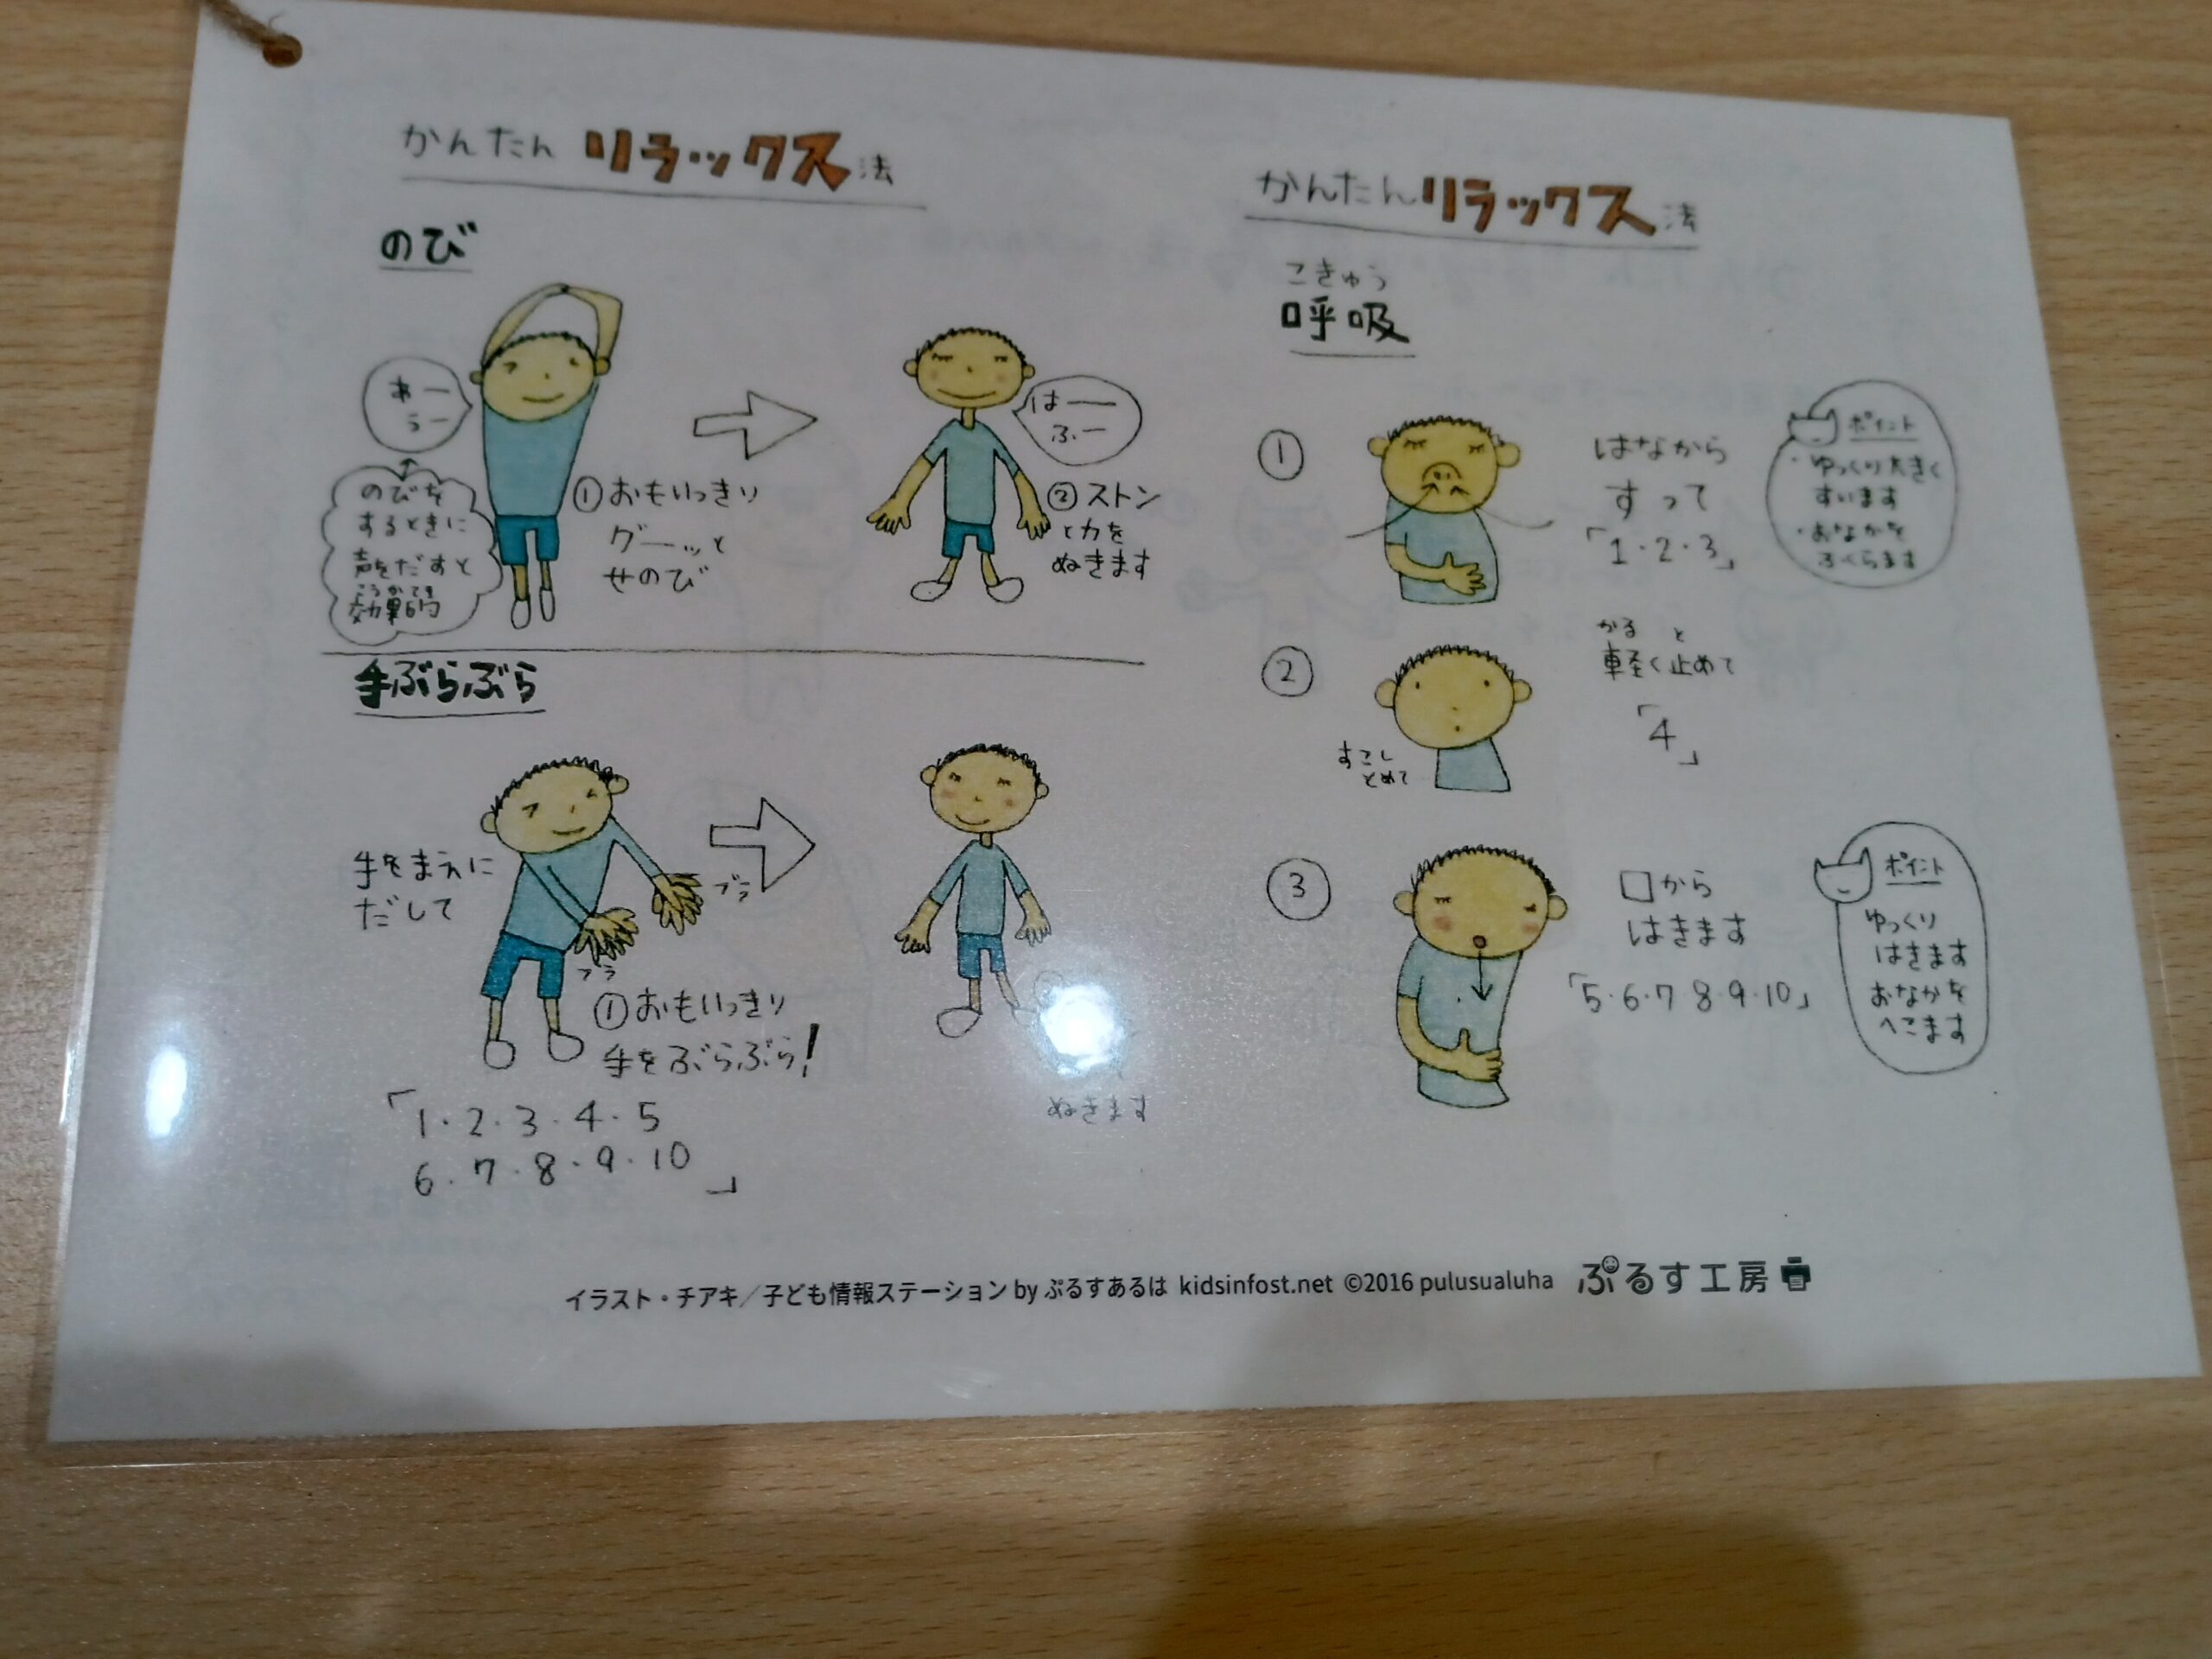 かんたん リラックス法
のび
あー
うー
のびを
するときに
声をだすと
こうかてき
効果的
①おもいっきり
グーッと
せのび
はー
ふー
②ストン
と力を
ぬきます
手ぶらぶら
手をまえに
だして
ブラ
ブラ
①おもいっきり
手をぶらぶら!
「1・2・3・4・5
6・7・8・9・10」
ぬきます
かんたんリラックス法
こきゅう
呼吸
①
はなから
すって
「1・2・3」
ポイント
・ゆっくり大きく
すいます
・おなかを
ふくらます
②
かる と
軽く止めて
「4」
すこし
とめて
③
口から
はきます
「5・6・7・8・9・10」
ポイント
ゆっくり
はきます
おなかを
へこます
イラスト・チアキ/子ども情報ステーション by ぷるすあるは kidsinfost.net ©2016 pulusualuha ぷるす工房